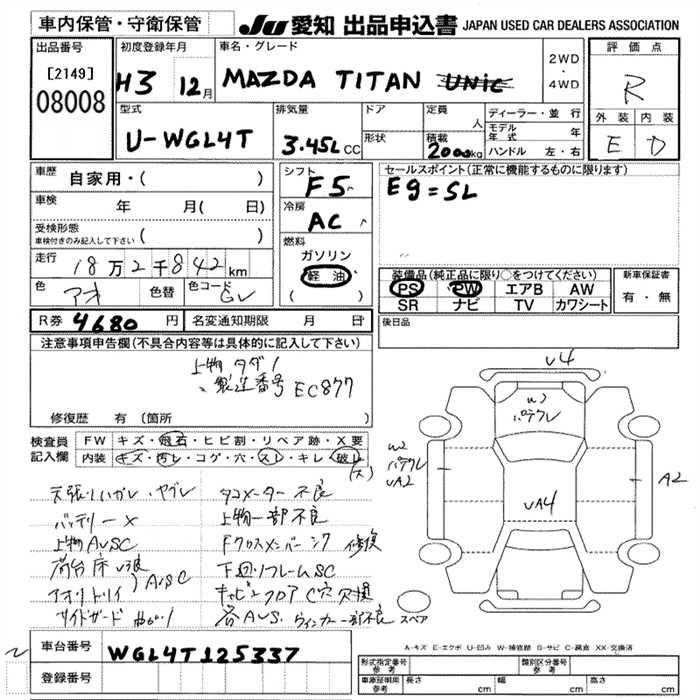 車内保管・守衛保管
JU 愛知 出品申込書 JAPAN USED CAR DEALERS ASSOCIATION
出品番号
[2149]
08008
初度登録年月
H3 12月
車名・グレード
MAZDA TITAN
2WD
・
4WD
評価点
R
外装 内装
E D
型式
U-WGL4T
排気量
3.45L CC
ドア
形状
定員
人
積載
2000kg
ディーラー・並行
モデル年式 年
ハンドル 左・右
車歴 自家用・( )
車検 年 月( 日)
受検形態
車検付きのみ記入して下さい ( )
走行 18万2千842km
色 アオ 色替 色コード GL
シフト
F5
冷房
AC
燃料
ガソリン
軽油
( )
セールスポイント(正常に機能するものに限ります)
Eg=SL
装備品(純正品に限り○をつけてください)
PS PW エアB AW
SR ナビ TV カワシート
新車保証書
有・無
R券 4680円 名変通知期限 月 日
後日品
注意事項申告欄(不具合内容等は具体的に記入して下さい)
上物 タダノ
製造番号 EC877
修復歴 有 (箇所 )
検査員記入欄
FW キズ・飛石・ヒビ割・リペア跡・X要
内装 キズ・汚レ・コゲ・穴・スレ・キレ・破レ
(大)
天張り
バッテリーX
上物AUSC
荷台床
AUSC
サイドガード
タコメーター不良
上物一部不良
Fクロスメンバー 修復
下廻りフレームSC
各AUS. ウィンカー一部不良
U4
W2
パテクレ
W2
パテクレ
UA2
UA4
A2
スペア
A-キズ E-エクボ U-凹み W-補修跡 S-サビ C-腐食 XX-交換済
車台番号 WGL4T125337
登録番号
形式指定番号
参考
類別区分番号
参考
車庫証明用
参考
長さ cm 幅 cm 高さ cm